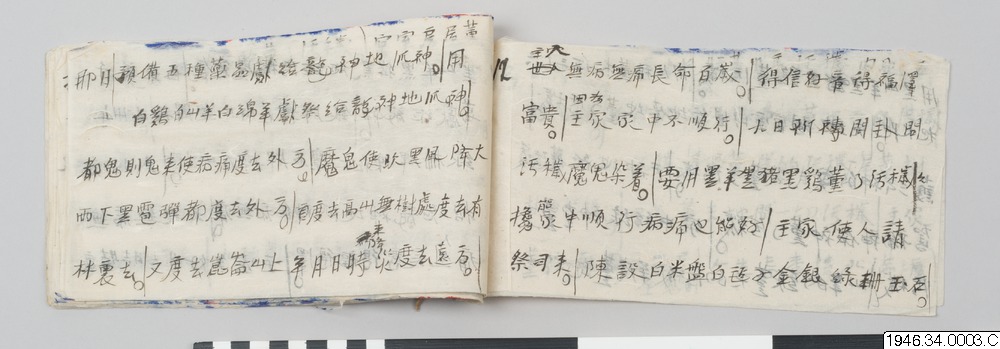 那月預備五種藥品獻給龍神地爪神。用
白鷄白山羊白綿羊獻祭給龍神地爪神。
都鬼則鬼來使病痛度去外方。魔鬼使吹黑風 降大
雨下黑雹彈都度去外方。百度去高山無樹處度去有
林裏去。又度去崑崙山上 年月日時災度去遠方。
12 無病無痛長命百歲。得
富貴。主家家中不順行。九日所轉問卦問
污穢魔鬼染着。要用黑羊黑猪黑鷄薰了污穢
家中順行病痛也能好 主家使人請
祭司來。陳設白米盤白 金銀綠珊玉石。
1946.34.0003.C